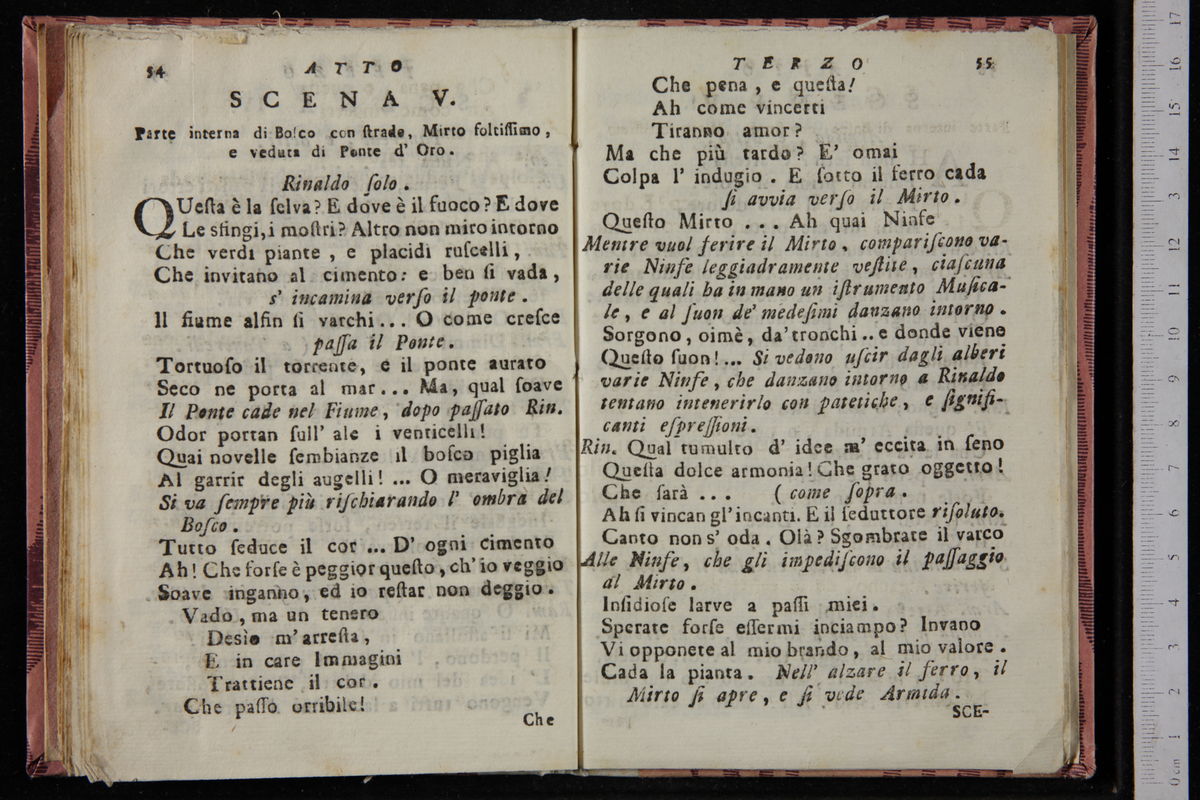 54 ATTO
SCENA V.
Parte interna di Boſco con ſtrade, Mirto foltiſſimo,
e veduta di Ponte d' Oro.
Rinaldo ſolo.
QUeſta è la ſelva? E dove è il fuoco? E dove
Le sfingi, i moſtri? Altro non miro intorno
Che verdi piante, e placidi ruſcelli,
Che invitano al cimento: e ben ſi vada,
s' incamina verſo il ponte.
Il fiume alfin ſi varchi... O come creſce
paſſa il Ponte.
Tortuoſo il torrente, e il ponte aurato
Seco ne porta al mar... Ma, qual ſoave
Il Ponte cade nel Fiume, dopo paſſato Rin.
Odor portan full' ale i venticelli!
Quai novelle ſembianze il boſco piglia
Al garrir degli augelli! ... O meraviglia!
Si va ſempre più riſchiarando l' ombra del
Boſco.
Tutto ſeduce il cor ... D' ogni cimento
Ah! Che forſe è peggior queſto, ch' io veggio
Soave inganno, ed io reſtar non deggio.
Vado, ma un tenero
Desìo m' arreſta,
E in care Immagini
Trattiene il cor.
Che paſſo orribile!
Che
TERZO 55
Che pena, e queſta!
Ah come vincerti
Tiranno amor?
Ma che più tardo? E' omai
Colpa l' indugio. E ſotto il ferro cada
ſi avvia verſo il Mirto.
Queſto Mirto ... Ah quai Ninfe
Mentre vuol ferire il Mirto, compariſcono va-
rie Ninfe leggiadramente veſtite, ciaſcuna
delle quali ha in mano un iſtrumento Muſica-
le, e al ſuon de' medeſimi danzano intorno.
Sorgono, oimè, da' tronchi .. e donde viene
Queſto ſuon! ... Si vedono uſcir dagli alberi
varie Ninfe, che danzano intorno a Rinaldo
tentano intenerirlo con patetiche, e ſignifi-
canti eſpreſſioni.
Rin. Qual tumulto d' idee m' eccita in ſeno
Queſta dolce armonia! Che grato oggetto!
Che ſarà ... ( come ſopra.
Ah ſi vincan gl' incanti. E il ſeduttore riſoluto.
Canto non s' oda. Olà? Sgombrate il varco
Alle Ninfe, che gli impediſcono il paſſaggio
al Mirto.
Inſidioſe larve a paſſi miei.
Sperate forſe eſſermi inciampo? Invano
Vi opponete al mio brando, al mio valore.
Cada la pianta. Nell' alzare il ferro, il
Mirto ſi apre, e ſi vede Armida.
SCE-